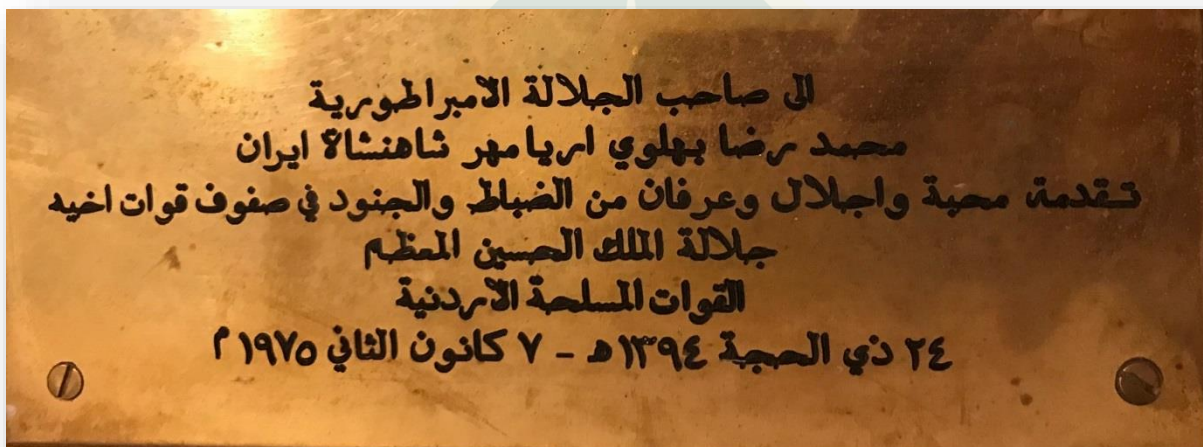 الى صاحب الجلالة الامبراطورية
محمد رضا بهلوي اريامهر شاهنشاة ايران
تقدمة محبة واجلال وعرفان من الضباط والجنود في صفوف قوات اخيه
جلالة الملك الحسين المعظم
القوات المسلحة الاردنية
٢٤ ذي الحجة ١٣٩٤ ه - ٧ كانون الثاني ١٩٧٥ م